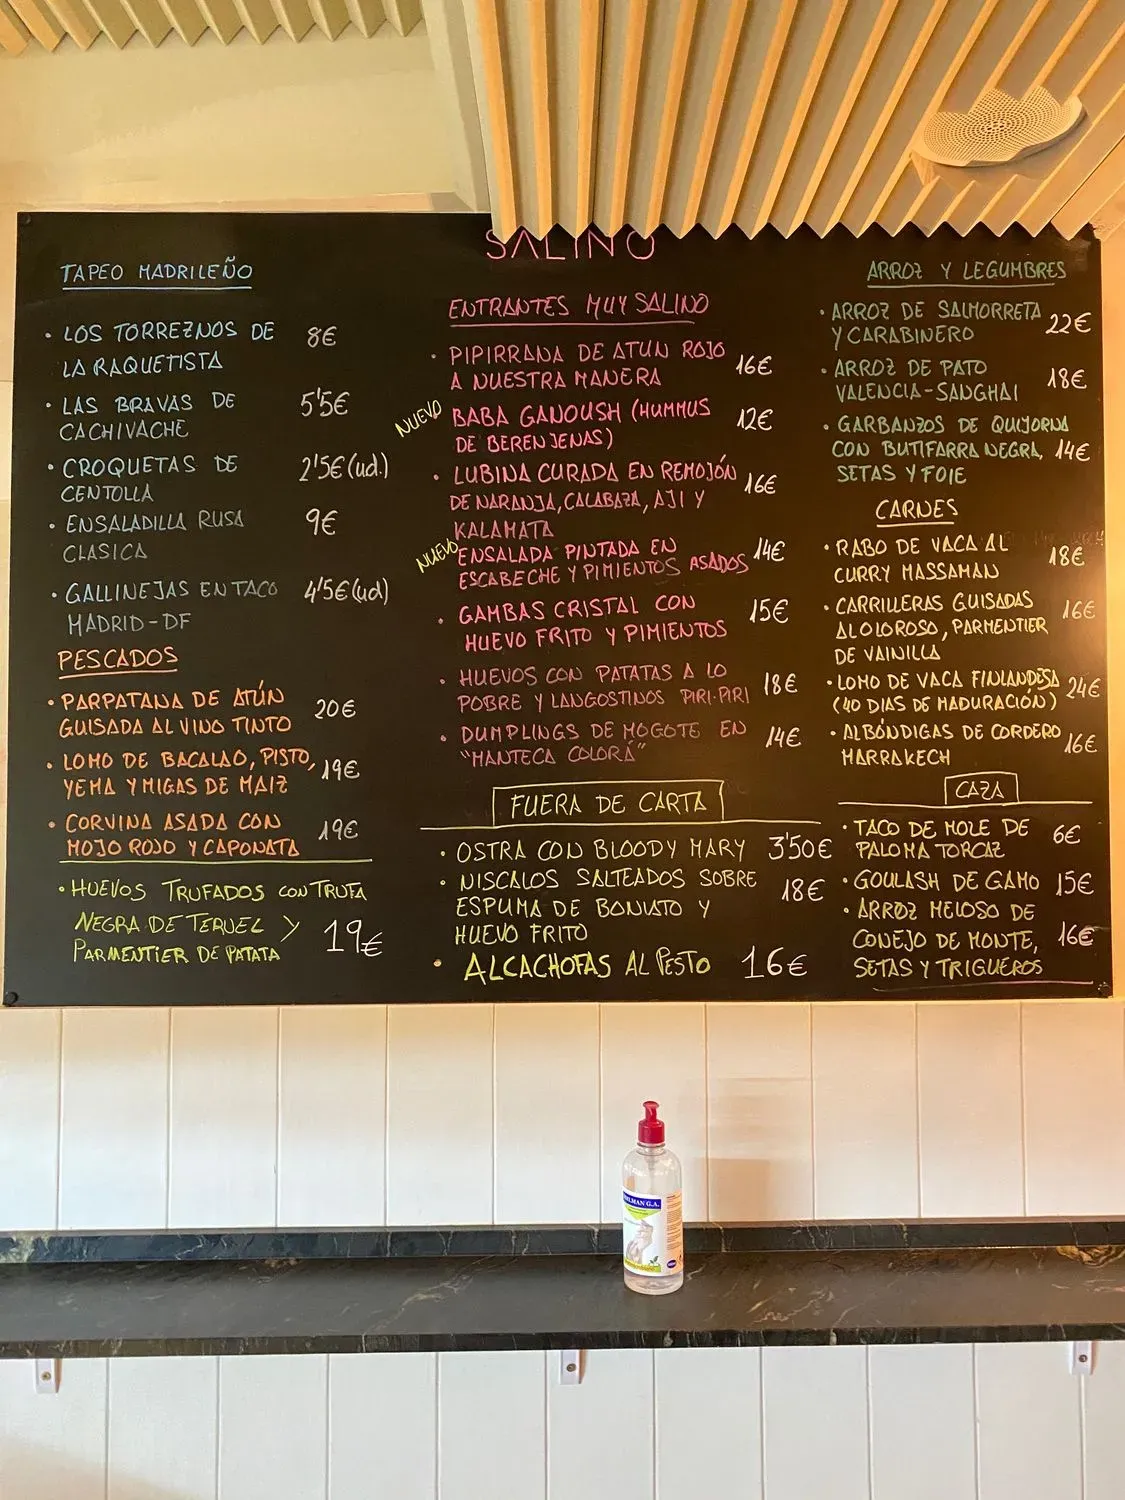 SALINO
TAPEO MADRILEÑO
• LOS TORREZNOS DE 8€
LA RAQUETISTA
• LAS BRAVAS DE 5'5€
CACHIVACHE
• CROQUETAS DE 2'5€ (ud.)
CENTOLLA
• ENSALADILLA RUSA 9€
CLASICA
• GALLINEJAS EN TACO 4'5€ (ud)
MADRID-DF
PESCADOS
• PARPATANA DE ATÚN 20€
GUISADA AL VINO TINTO
• LOMO DE BACALAO, PISTO, 19€
YEMA Y MIGAS DE MAIZ
• CORVINA ASADA CON 19€
MOJO ROJO Y CAPONATA
• HUEVOS TRUFADOS CON TRUFA
NEGRA DE TERUEL Y 19€
PARMENTIER DE PATATA
ENTRANTES MUY SALINO
• PIPIRRANA DE ATUN ROJO 16€
A NUESTRA MANERA
NUEVO BABA GANOUSH (HUMMUS 12€
DE BERENJENAS)
• LUBINA CURADA EN REMOJÓN 16€
DE NARANJA, CALABAZA, AJI Y
KALAMATA
NUEVO ENSALADA PINTADA EN 14€
ESCABECHE Y PIMIENTOS ASADOS
• GAMBAS CRISTAL CON 15€
HUEVO FRITO Y PIMIENTOS
• HUEVOS CON PATATAS A LO 18€
POBRE Y LANGOSTINOS PIRI-PIRI
• DUMPLINGS DE MOGOTE EN 14€
"MANTECA COLORÁ"
FUERA DE CARTA
• OSTRA CON BLOODY MARY 3'50€
• NISCALOS SALTEADOS SOBRE 18€
ESPUMA DE BONIATO Y
HUEVO FRITO
• ALCACHOFAS AL PESTO 16€
ARROZ Y LEGUMBRES
• ARROZ DE SALMORRETA 22€
Y CARABINERO
• ARROZ DE PATO 18€
VALENCIA-SANGHAI
• GARBANZOS DE QUIJORNA
CON BUTIFARRA NEGRA, 14€
SETAS Y FOIE
CARNES
• RABO DE VACA AL 18€
CURRY MASSAMAN
• CARRILLERAS GUISADAS 16€
AL OLOROSO, PARMENTIER
DE VAINILLA
• LOMO DE VACA FINLANDESA 24€
(40 DIAS DE MADURACIÓN)
• ALBÓNDIGAS DE CORDERO 16€
MARRAKECH
CAZA
• TACO DE MOLE DE 6€
PALOMA TORCAZ
• GOULASH DE GAMO 15€
• ARROZ MELOSO DE
CONEJO DE MONTE, 16€
SETAS Y TRIGUEROS
G.A.